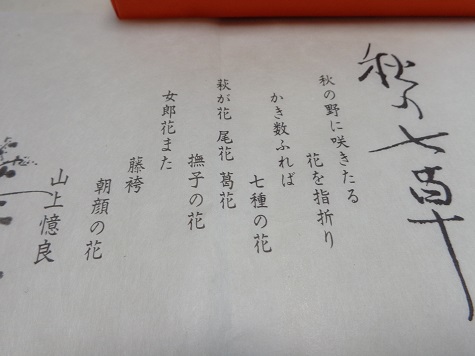 秋の七草
秋の野に咲きたる
花を指折り
かき数ふれば
七種の花
萩が花 尾花 葛花
撫子の花
女郎花また
藤袴
朝顔の花
山上憶良